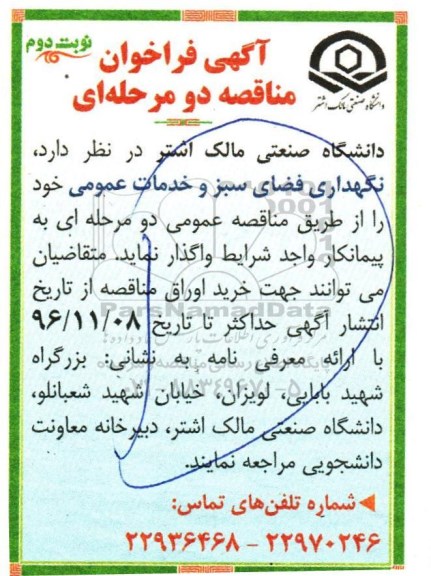 نوبت دوم
آگهی فراخوان
مناقصه دو مرحله‌ای
دانشگاه صنعتی مالک اشتر
دانشگاه صنعتی مالک اشتر در نظر دارد،
نگهداری فضای سبز و خدمات عمومی خود
را از طریق مناقصه عمومی دو مرحله ای به
پیمانکار واجد شرایط واگذار نماید. متقاضیان
می توانند جهت خرید اوراق مناقصه از تاریخ
انتشار آگهی حداکثر تا تاریخ ۹۶/۱۱/۰۸
با ارائه معرفی نامه به نشانی: بزرگراه
شهید بابایی، لویزان، خیابان شهید شعبانلو،
دانشگاه صنعتی مالک اشتر، دبیرخانه معاونت
دانشجویی مراجعه نمایند.
شماره تلفن‌های تماس:
۲۲۹۷۰۲۴۶ - ۲۲۹۳۶۴۶۸
ParsNamadData